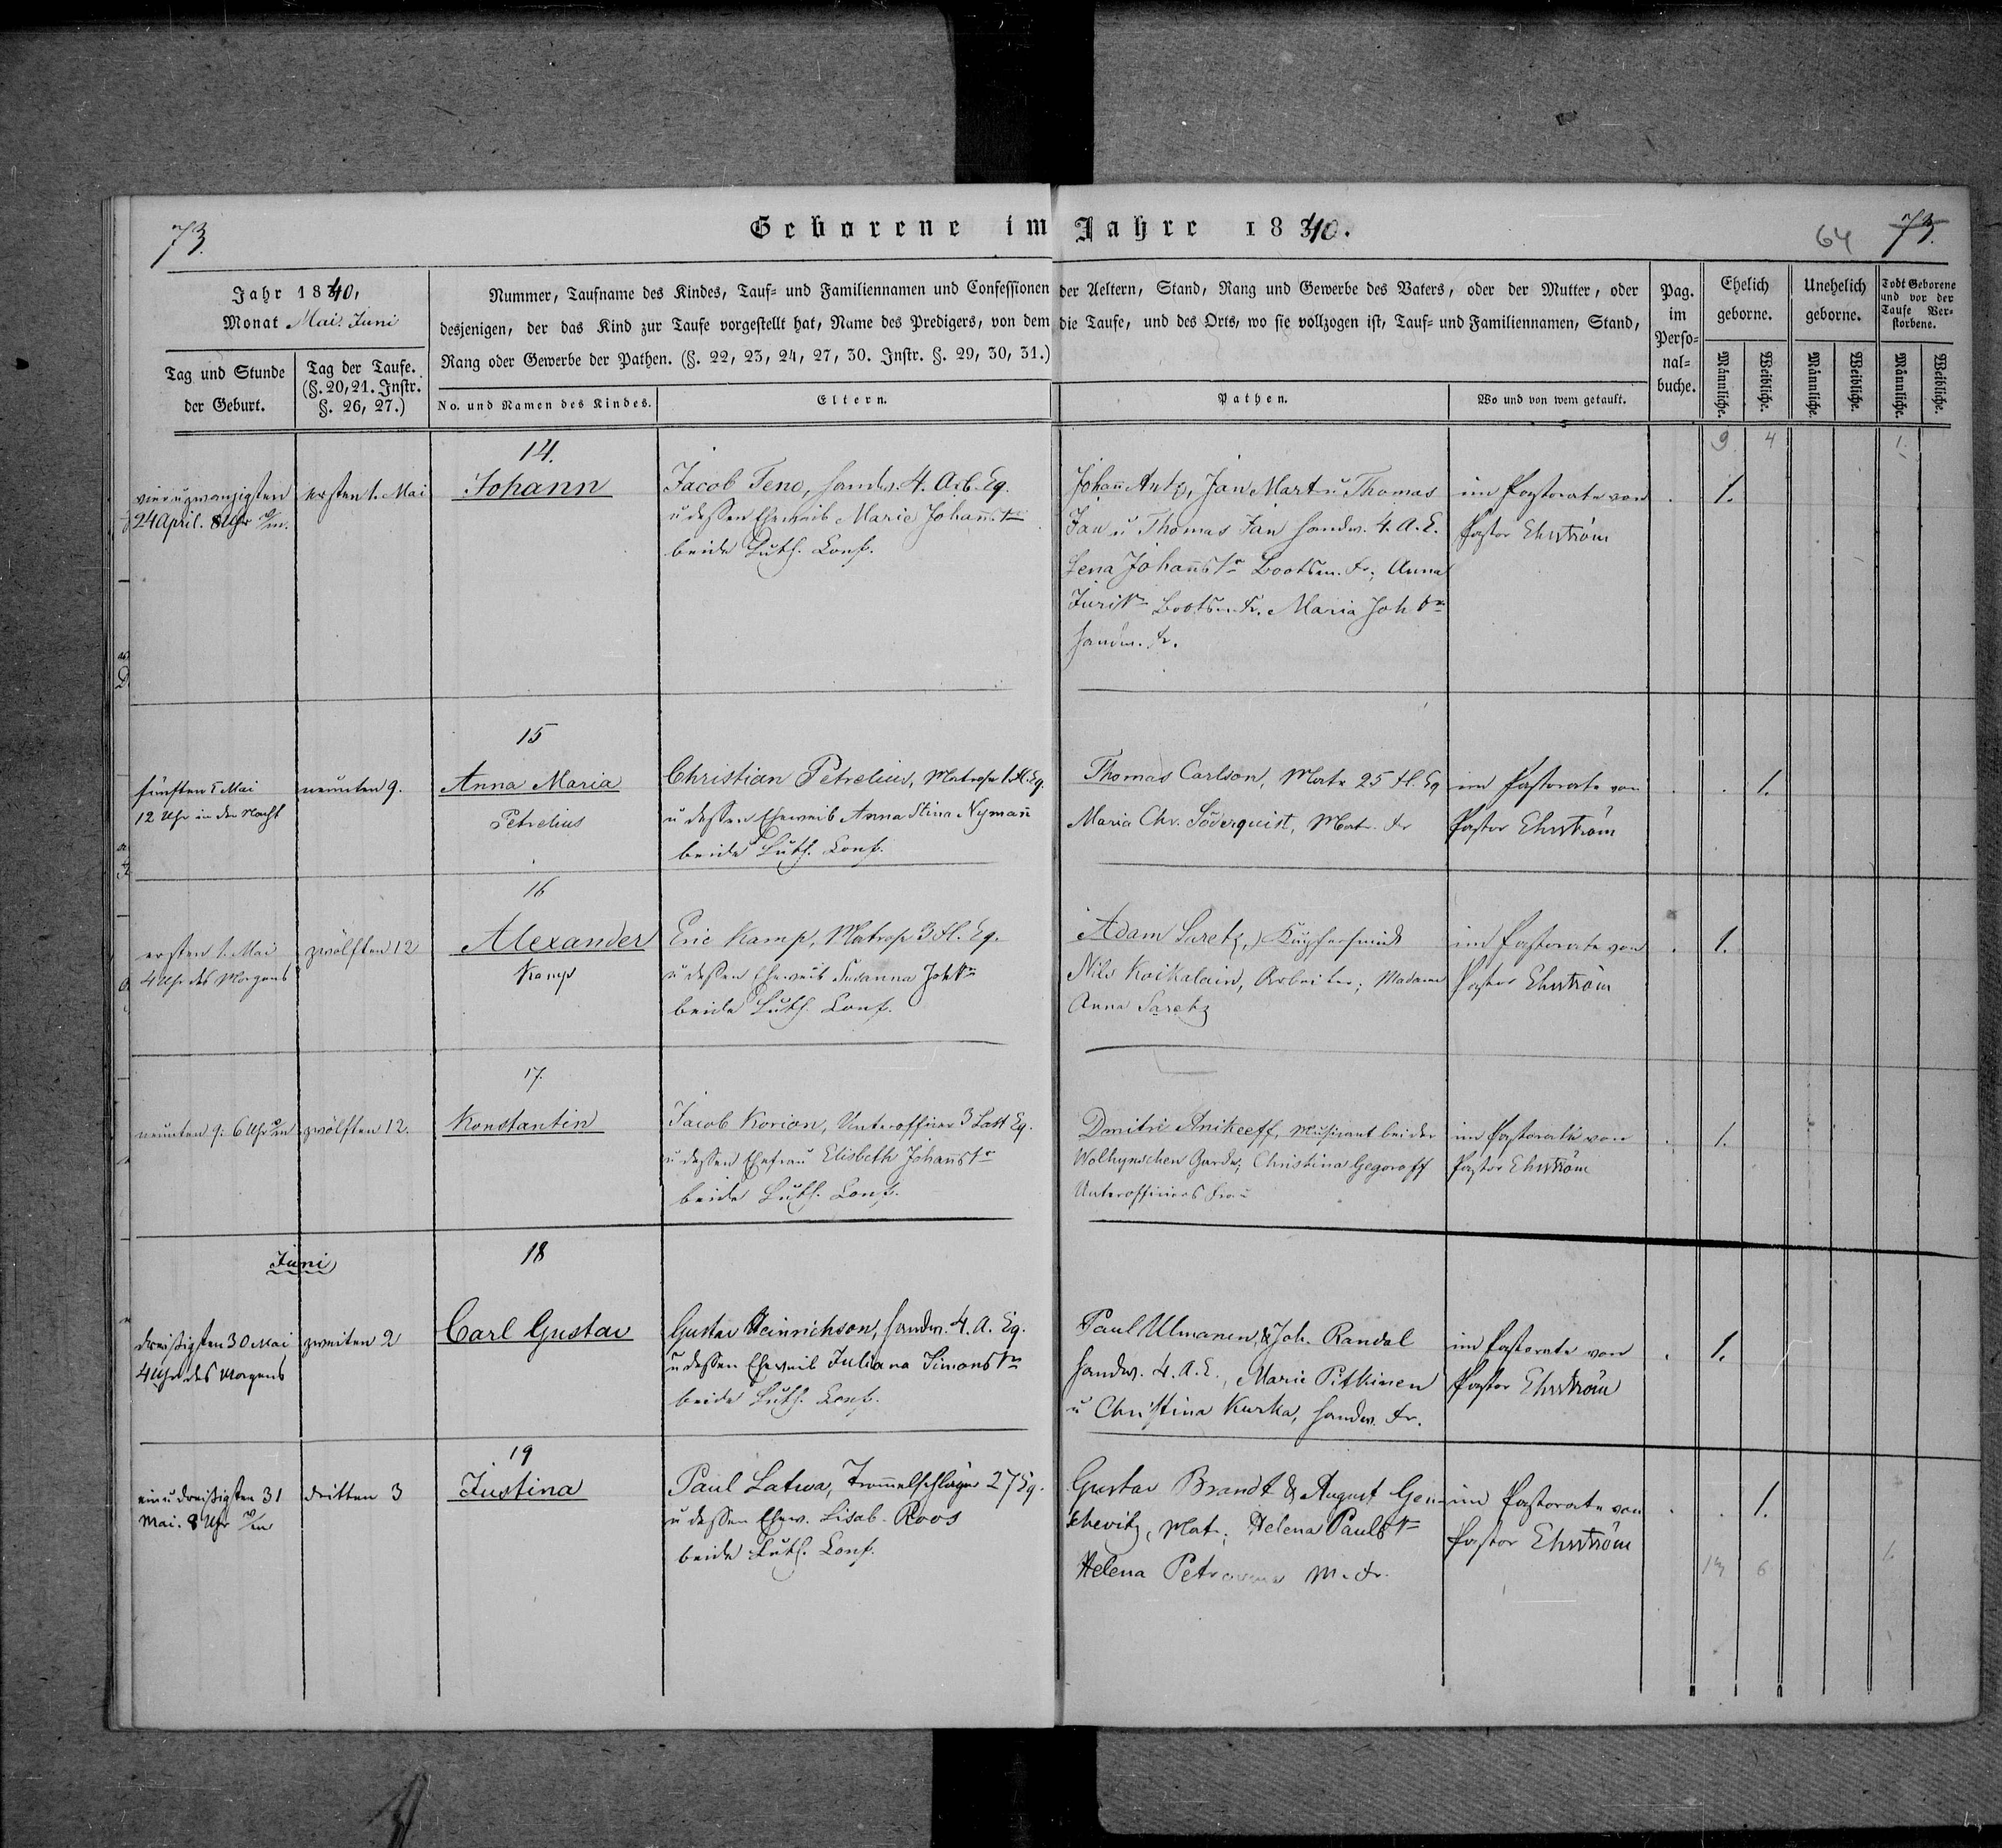 73.
Geborene im Jahre 1840.
64 73.
Jahr 1840,
Monat Mai. Juni
Tag und Stunde
der Geburt.
Tag der Taufe.
(§. 20, 21. Instr.
§. 26, 27.)
Nummer, Taufname des Kindes, Tauf- und Familiennamen und Confessionen der Aeltern, Stand, Rang und Gewerbe des Vaters, oder der Mutter, oder
desjenigen, der das Kind zur Taufe vorgestellt hat, Name des Predigers, von dem die Taufe, und des Orts, wo sie vollzogen ist, Tauf- und Familiennamen, Stand,
Rang oder Gewerbe der Pathen. (§. 22, 23, 24, 27, 30. Instr. §. 29, 30, 31.)
No. und Namen des Kindes.
Eltern.
Pathen.
Wo und von wem getauft.
Pag.
im
Perso-
nal-
buche.
Ehelich
geborne.
Unehelich
geborne.
Todt Geborene
und vor der
Taufe Ver-
storbene.
Männliche.
Weibliche.
Männliche.
Weibliche.
Männliche.
Weibliche.
9 4 1.
14.
vier u zwanzigsten
24 April. 8 Uhr
ersten 1. Mai
Johann
Jacob Teno, Handw. 4. Arb. Eq.
u dessen Eheweib Marie Johannstr
beide Luth. Conf.
Johann Antz, Jan Mart u Thomas
Jan u Thomas Jan Handw. 4. A. E.
Lena Johannstr Bootsm. Fr; Anna
Juristr Bootsm. Fr. Maria Joh tr
Handw. Fr.
im Pastorate von
Pastor Ehrström
1.
15
fünften 5 Mai
12 Uhr in der Nacht
neunten 9.
Anna Maria
Petrelius
Christian Petrelius, Matrose 1. Fl. Eq.
u dessen Eheweib Anna Stina Nymann
beide Luth. Conf.
Thomas Carlson, Matr 25 Fl. Eq
Maria Chr. Söderquist, Matr. Fr
im Pastorate von
Pastor Ehrström
1.
16
ersten 1. Mai
4 Uhr des Morgens
zwölften 12
Alexander
Kamp
Eric Kamp, Matrose 3 Fl. Eq.
u dessen Eheweib Susanna Johtr
beide Luth. Conf.
Adam Saretz, Küpferschmidt
Nils Koikalain, Arbeiter; Madame
Anna Saretz
im Pastorate von
Pastor Ehrström
1.
17.
neunten 9. 6 Uhr
zwölften 12.
Konstantin
Jacob Korion, Unterofficier 3 Last Eq.
u dessen Ehefrau Elisbeth Johannstr
beide Luth. Conf.
Dmitri Anikeeff, Musicant bei der
Wolhynschen Garde; Christina Gegoroff
Unterofficiers Frau
im Pastorate von
Pastor Ehrström
1.
Juni
18
dreissigsten 30 Mai
4 Uhr des Morgens
zweiten 2
Carl Gustav
Gustav Heinrichson, Handw. 4. A. Eq.
u dessen Eheweib Juliana Simonstr
beide Luth. Conf.
Paul Ulmanen, & Joh. Randal
Handw. 4. A. E., Marie Pitkinen
u Christina Kurka, Handw. Fr.
im Pastorate von
Pastor Ehrström
1.
19
ein u dreissigsten 31
Mai. 8 Uhr
dritten 3
Justina
Paul Latwa, Trommelschläger 27 Eq.
u dessen Ehew. Lisab. Roos
beide Luth. Conf.
Gustav Brandt & August Gen-
schevitz, Matr; Helena Paulstr
Helena M. Fr.
im Pastorate von
Pastor Ehrström
1.
13 6 1.